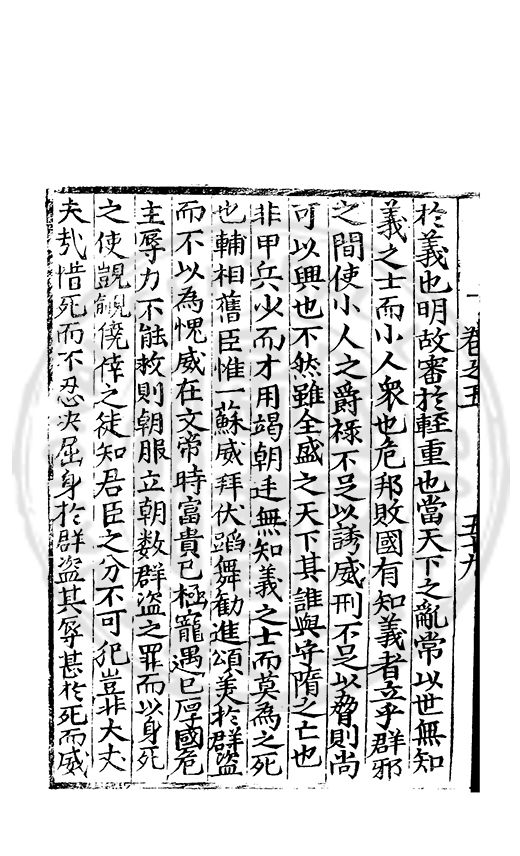 卷之五 五十九
於義也明故審於輕重也當天下之亂常以世無知
義之士而小人衆也危邦敗國有知義者立乎群邪
之間使小人之爵祿不足以誘威刑不足以脅則尚
可以興也不然雖全盛之天下其誰與守隋之亡也
非甲兵少而才用竭朝廷無知義之士而莫為之死
也輔相舊臣惟一蘇威拜伏蹈舞勸進頌美於群盜
而不以為愧威在文帝時富貴已極寵遇已厚國危
主辱力不能救則朝服立朝数群盜之罪而以身死
之使覬覦僥倖之徒知君臣之分不可犯豈非大丈
夫哉惜死而不忍决屈身於群盜其辱甚於死而威